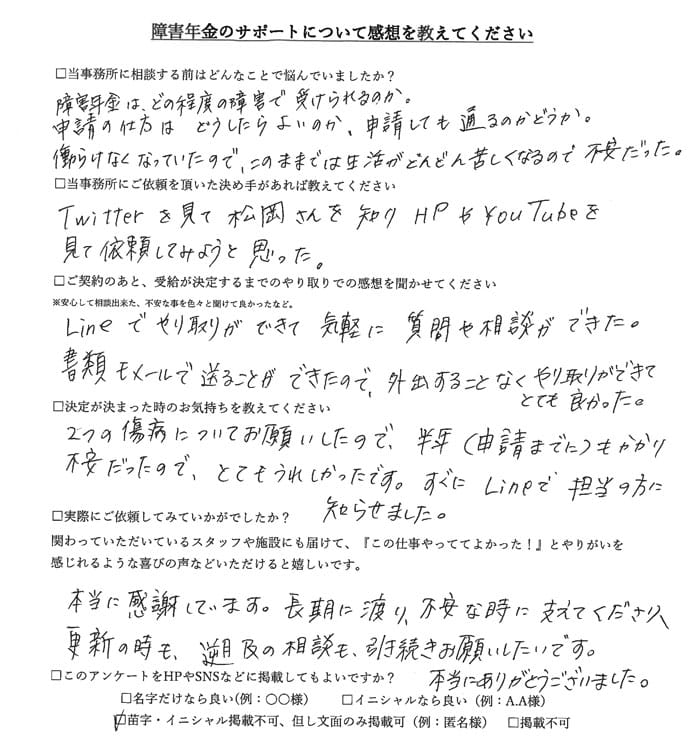 障害年金のサポートについて感想を教えてください
□当事務所に相談する前はどんなことで悩んでいましたか？
障害年金は、どの程度の障害で受けられるのか。
申請の仕方はどうしたらよいのか、申請しても通るのかどうか。
働らけなくなっていたので、このままでは生活がどんどん苦しくなるので不安だった。
□当事務所にご依頼を頂いた決め手があれば教えてください
Twitterを見て松岡さんを知りHPやYouTubeを
見て依頼してみようと思った。
□ご契約のあと、受給が決定するまでのやり取りでの感想を聞かせてください
※安心して相談出来た、不安な事を色々と聞けて良かったなど。
Lineでやり取りができて気軽に質問や相談ができた。
書類もメールで送ることができたので、外出することなくやり取りができて
とても良かった。
□決定が決まった時のお気持ちを教えてください
2つの傷病についてお願いしたので、半年（申請までに）もかかり
不安だったので、とてもうれしかったです。すぐにLineで担当の方に
知らせました。
□実際にご依頼してみていかがでしたか？
関わっていただいているスタッフや施設にも届けて、『この仕事やっててよかった！』とやりがいを
感じれるような喜びの声などいただけると嬉しいです。
本当に感謝しています。長期に渡り、不安な時に支えてくださり、
更新の時も、遡及の相談も、引き続きお願いしたいです。
本当にありがとうございました。
□このアンケートをHPやSNSなどに掲載してもよいですか？
□名字だけなら良い(例：〇〇様)　□イニシャルなら良い（例：A.A様）
☑苗字・イニシャル掲載不可、但し文面のみ掲載可（例：匿名様）　□掲載不可